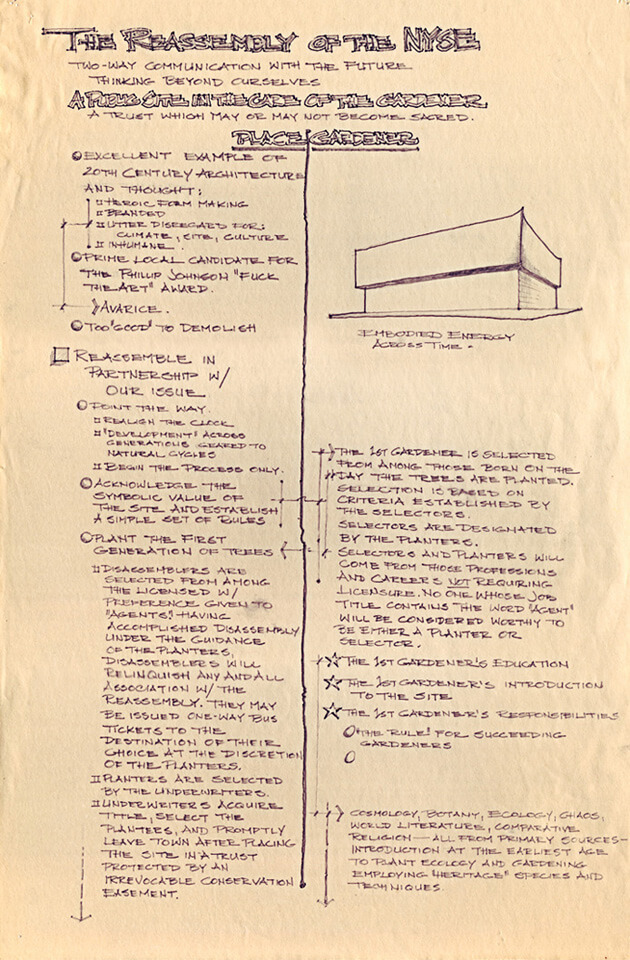 THE REASSEMBLY OF THE NYSE
TWO-WAY COMMUNICATION WITH THE FUTURE
THINKING BEYOND OURSELVES
A PUBLIC SITE IN THE CARE OF THE GARDENER
A TRUST WHICH MAY OR MAY NOT BECOME SACRED.
PLACE GARDENER
EXCELLENT EXAMPLE OF
20TH CENTURY ARCHITECTURE
AND THOUGHT:
HEROIC FORM MAKING
BRANDED
UTTER DISREGARD FOR:
CLIMATE, SITE, CULTURE
INHUMANE.
PRIME LOCAL CANDIDATE FOR
THE PHILLIP JOHNSON "FUCK
THE ART" AWARD.
AVARICE.
TOO "GOOD" TO DEMOLISH
REASSEMBLE IN
PARTNERSHIP W/
OUR ISSUE
POINT THE WAY.
REALIGN THE CLOCK
"DEVELOPMENT" ACROSS
GENERATIONS GEARED TO
NATURAL CYCLES
BEGIN THE PROCESS ONLY.
ACKNOWLEDGE THE
SYMBOLIC VALUE OF
THE SITE AND ESTABLISH
A SIMPLE SET OF RULES
PLANT THE FIRST
GENERATION OF TREES
DISASSEMBLERS ARE
SELECTED FROM AMONG
THE LICENSED W/
PREFERENCE GIVEN TO
"AGENTS". HAVING
ACCOMPLISHED DISASSEMBLY
UNDER THE GUIDANCE
OF THE PLANTERS,
DISASSEMBLERS WILL
RELINQUISH ANY AND ALL
ASSOCIATION W/ THE
REASSEMBLY. THEY MAY
BE ISSUED ONE-WAY BUS
TICKETS TO THE
DESTINATION OF THEIR
CHOICE AT THE DISCRETION
OF THE PLANTERS.
PLANTERS ARE SELECTED
BY THE UNDERWRITERS.
UNDERWRITERS ACQUIRE
TITLE, SELECT THE
PLANTEES, AND PROMPTLY
LEAVE TOWN AFTER PLACING
THE SITE IN A TRUST
PROTECTED BY AN
IRREVOCABLE CONSERVATION
EASEMENT.
EMBODIED ENERGY
ACROSS TIME.
THE 1ST GARDENER IS SELECTED
FROM AMONG THOSE BORN ON THE
DAY THE TREES ARE PLANTED.
SELECTION IS BASED ON
CRITERIA ESTABLISHED BY
THE SELECTORS.
SELECTORS ARE DESIGNATED
BY THE PLANTERS.
SELECTORS AND PLANTERS WILL
COME FROM THOSE PROFESSIONS
AND CAREERS NOT REQUIRING
LICENSURE. NO ONE WHOSE JOB
TITLE CONTAINS THE WORD "AGENT"
WILL BE CONSIDERED WORTHY TO
BE EITHER A PLANTER OR
SELECTOR.
THE 1ST GARDENER'S EDUCATION
THE 1ST GARDENER'S INTRODUCTION
TO THE SITE
THE 1ST GARDENER'S RESPONSIBILITIES
"THE RULE" FOR SUCCEEDING
GARDENERS
COSMOLOGY, BOTANY, ECOLOGY, CHAOS,
WORLD LITERATURE, COMPARATIVE
RELIGION — ALL FROM PRIMARY SOURCES —
INTRODUCTION AT THE EARLIEST AGE
TO PLANT ECOLOGY AND GARDENING
EMPLOYING "HERITAGE" SPECIES AND
TECHNIQUES.